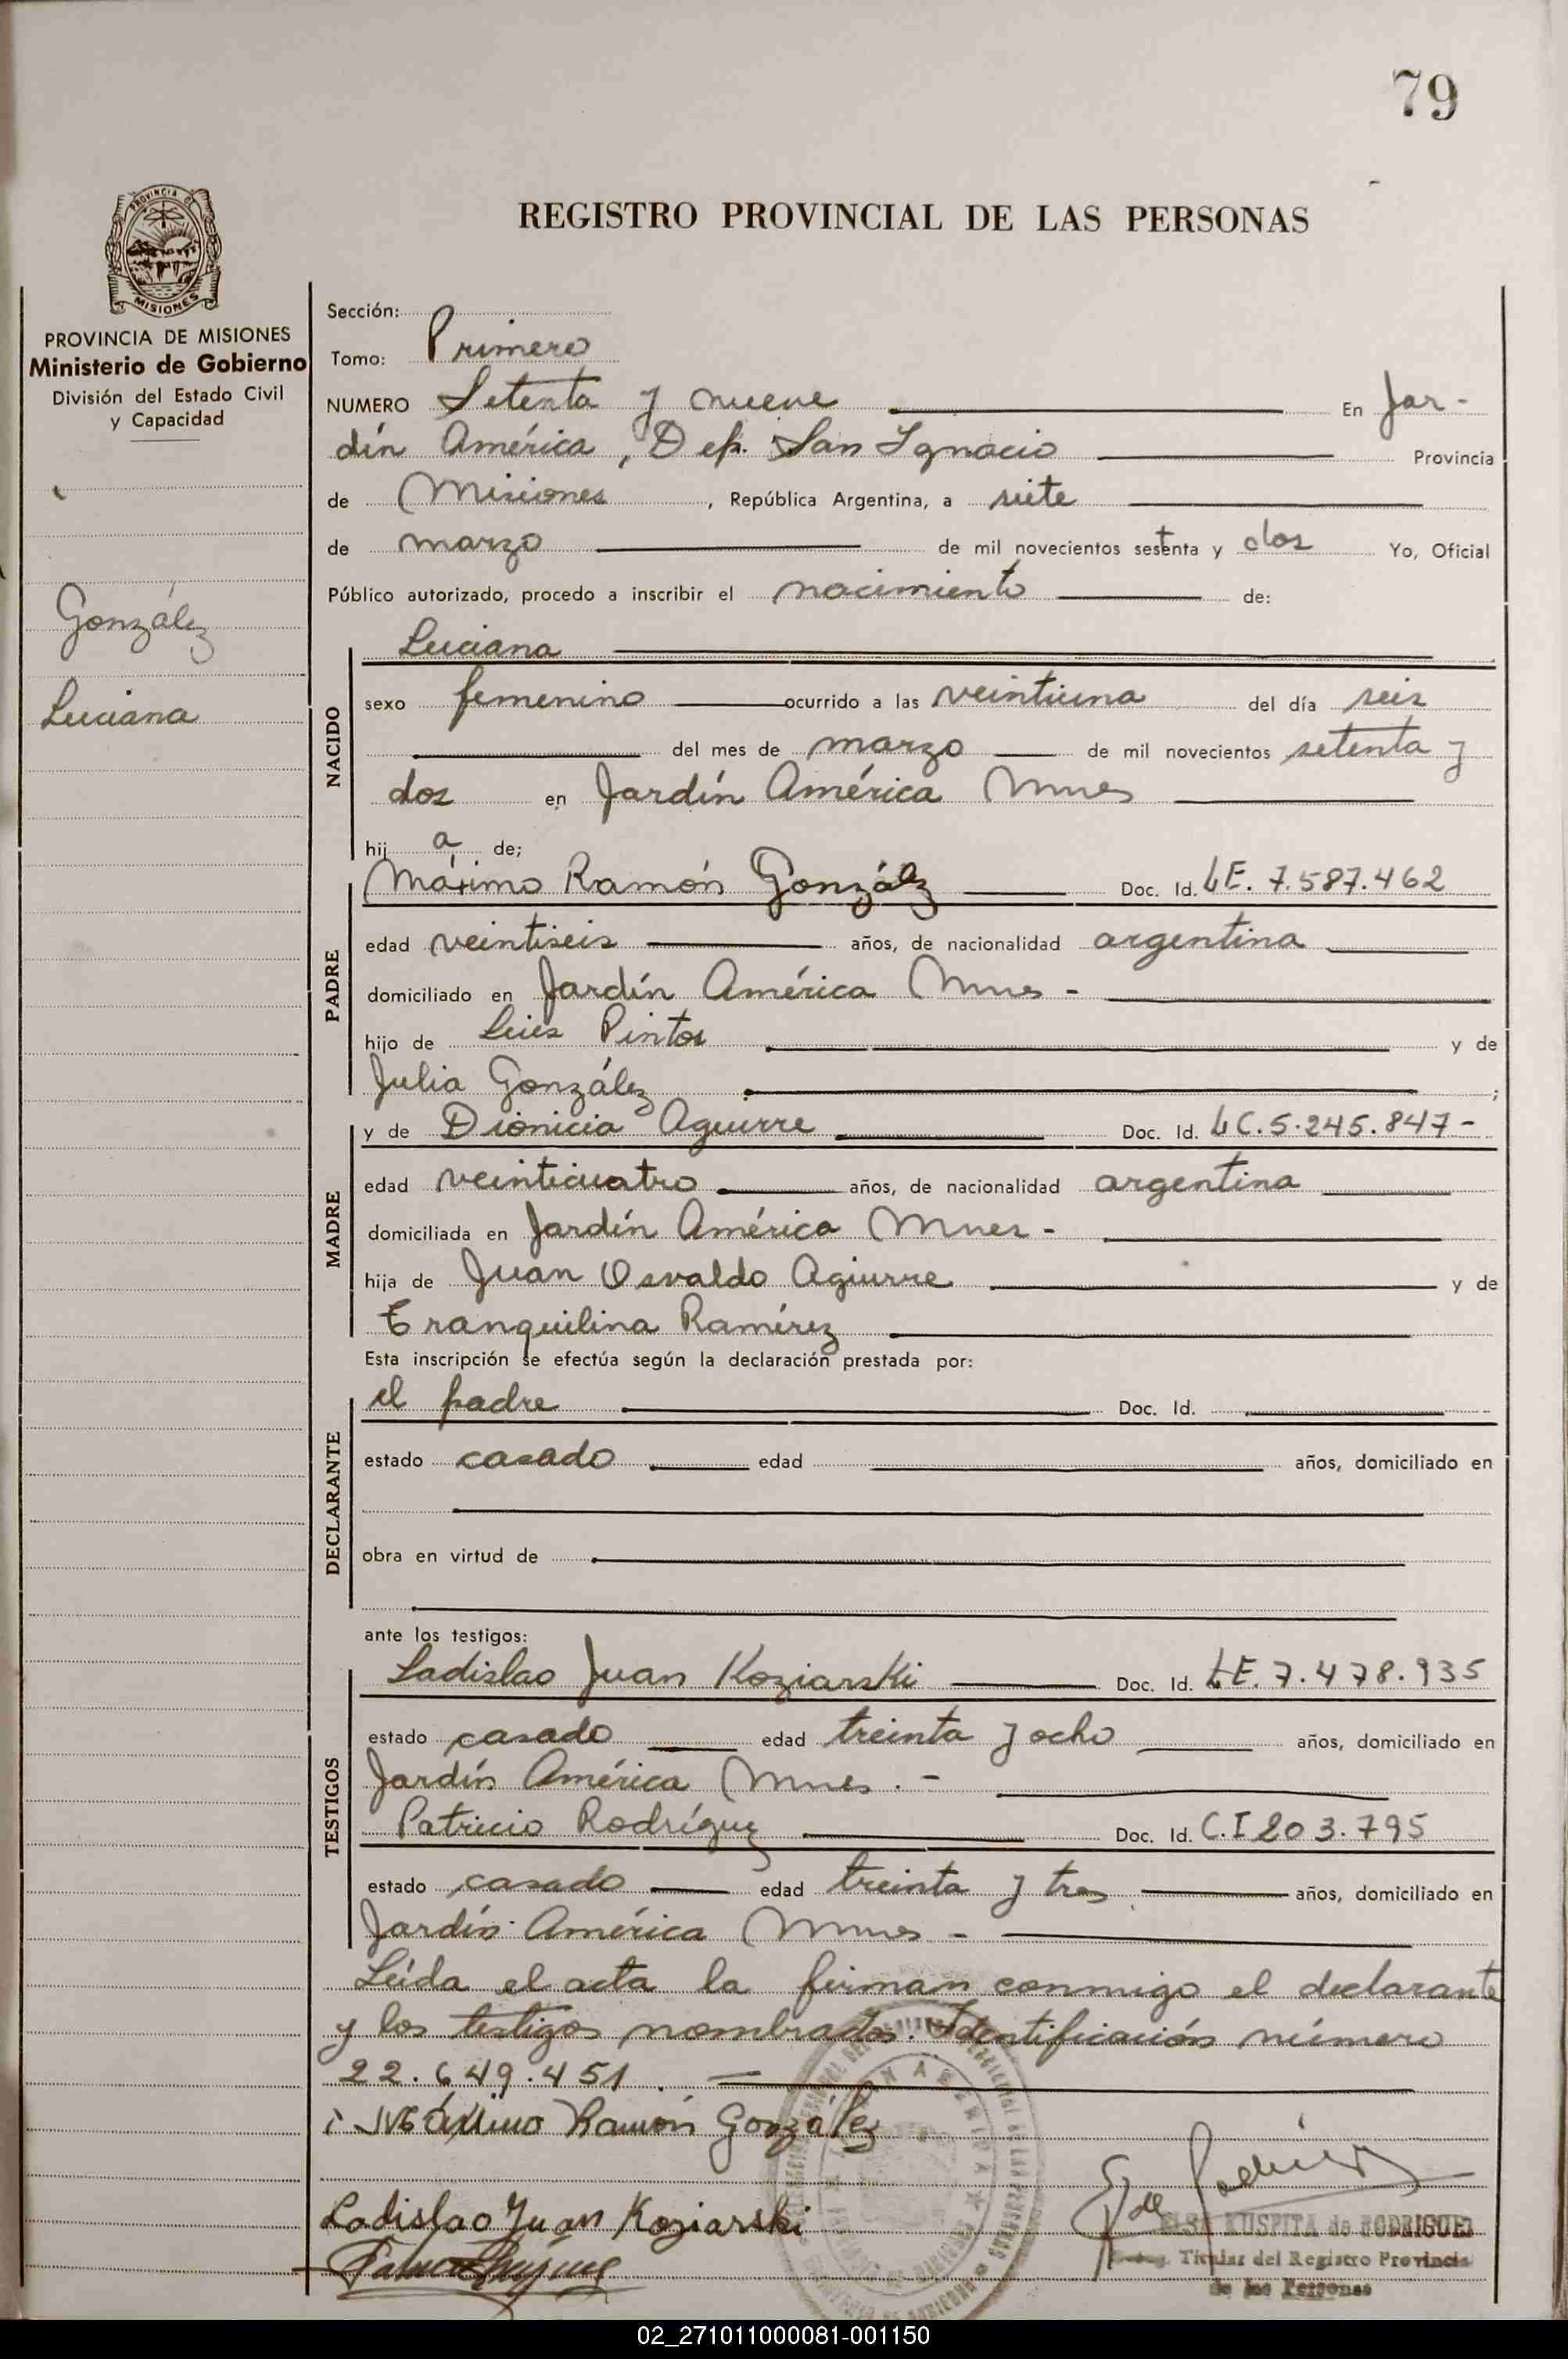 79
REGISTRO PROVINCIAL DE LAS PERSONAS
PROVINCIA DE MISIONES
Ministerio de Gobierno
División del Estado Civil
y Capacidad
González
Luciana
Sección:
Tomo: Primero
NUMERO Setenta y nueve En Jar-
dín América, Dep. San Ignacio Provincia
de Misiones, República Argentina, a siete
de marzo de mil novecientos setenta y dos Yo, Oficial
Público autorizado, procedo a inscribir el nacimiento de:
NACIDO
Luciana
sexo femenino ocurrido a las veintiuna del día seis
del mes de marzo de mil novecientos setenta y
dos en Jardín América Mnes
hij a de;
PADRE
Máximo Ramón González Doc. Id. LE. 7.587.462
edad veintiseis años, de nacionalidad argentina
domiciliado en Jardín América Mnes -
hijo de Luis Pintos y de
Julia González ;
MADRE
y de Dionicia Aguirre Doc. Id. LC. 5.245.847 -
edad veinticuatro años, de nacionalidad argentina
domiciliada en Jardín América Mnes -
hija de Juan Osvaldo Aguirre y de
Tranquilina Ramírez
Esta inscripción se efectúa según la declaración prestada por:
DECLARANTE
el padre Doc. Id.
estado casado edad años, domiciliado en
obra en virtud de
ante los testigos:
TESTIGOS
Ladislao Juan Koziarski Doc. Id. LE. 7.478.935
estado casado edad treinta y ocho años, domiciliado en
Jardín América Mnes. -
Patricio Rodríguez Doc. Id. C.I 203.795
estado casado edad treinta y tres años, domiciliado en
Jardín América Mnes -
Leída el acta la firman conmigo el declarante
y los testigos nombrados. Identificación número
22.649.451.
Máximo Ramón González
Ladislao Juan Koziarski
KUSPITA de RODRIGUEZ
Titular del Registro Provincia
de las Personas
02_271011000081-001150